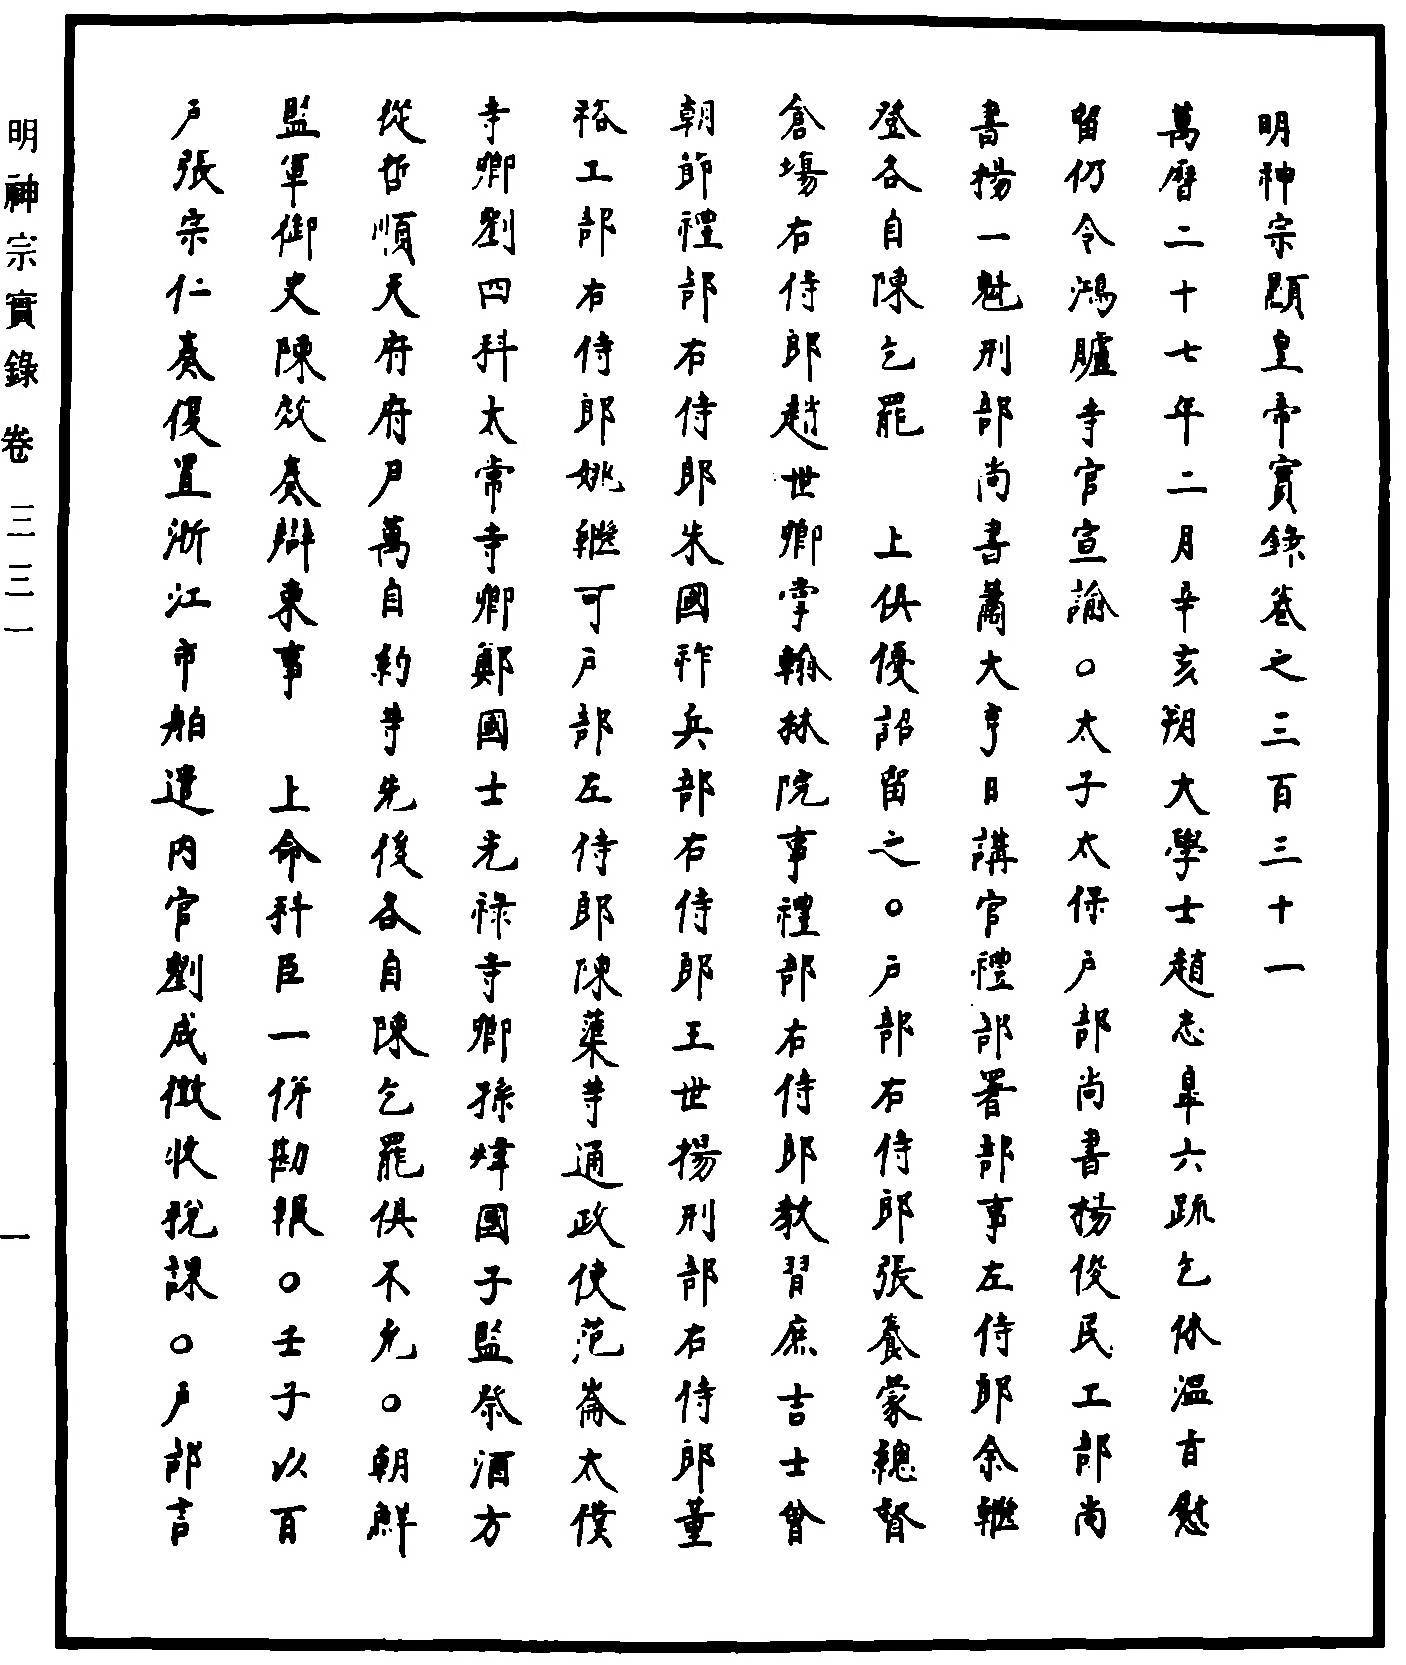 明神宗顯皇帝實錄卷之三百三十一
萬曆二十七年二月辛亥朔大學士趙志皐六疏乞休溫旨慰
留仍令鴻臚寺官宣諭○太子太保戶部尚書楊俊民工部尚
書楊一魁刑部尚書蕭大亨日講官禮部署部事左侍郎余繼
登各自陳乞罷　上俱優詔留之○戶部右侍郎張養蒙總督
倉場右侍郎趙世卿掌翰林院事禮部右侍郎教習庶吉士曾
朝節禮部右侍郎朱國祚兵部右侍郎王世揚刑部右侍郎董
裕工部右侍郎姚繼可戶部左侍郎陳蕖等通政使范崙太僕
寺卿劉四科太常寺卿鄭國士光祿寺卿孫煒國子監祭酒方
從哲順天府府尹萬自約等先後各自陳乞罷俱不允○朝鮮
監軍御史陳效奏辯東事　上命科臣一併勘報○壬子以百
戶張宗仁奏復置浙江市舶遣內官劉成徵收稅課○戶部言
明神宗實錄卷三三一
一